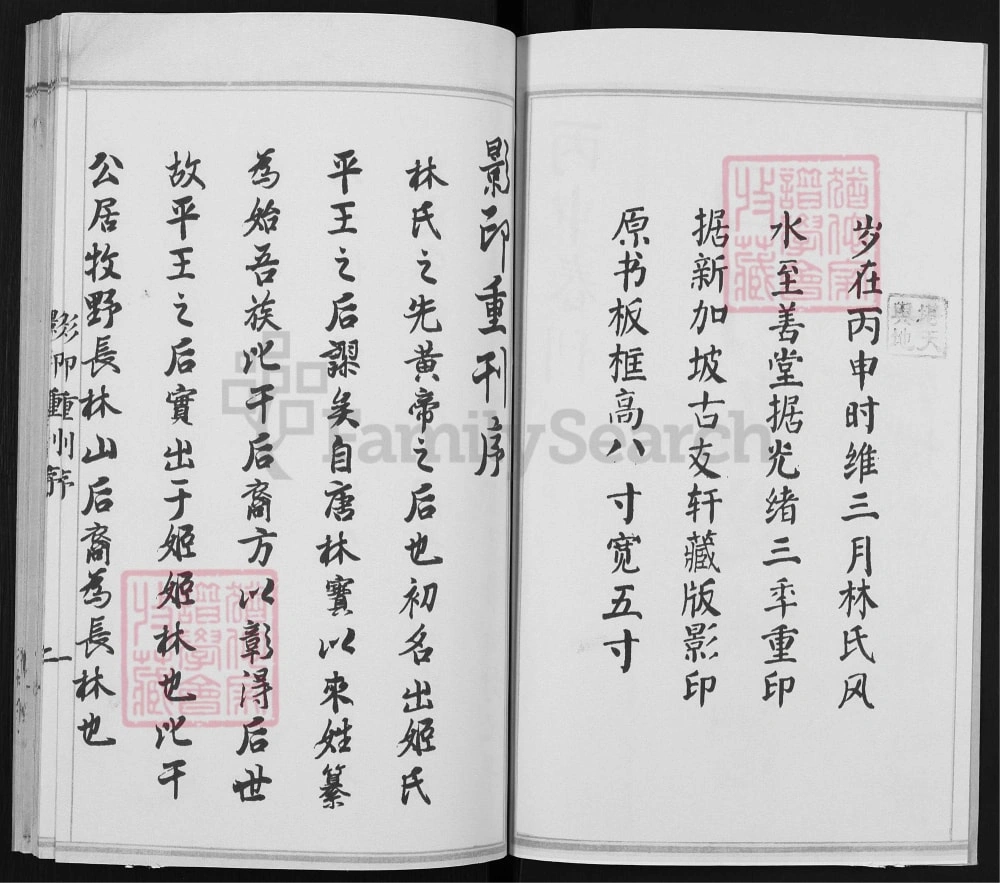 岁在丙申时维三月林氏风
水至善堂据光绪三年重印
据新加坡古友轩藏版影印
原书板框高八寸宽五寸
影印重刊序
林氏之先黄帝之后也初名出姬氏
平王之后謬矣自唐林寳以来姓纂
為始吾族比干后裔方以彰淂后世
故平王之后實出于姬姬林也比干
公居牧野長林山后裔為長林也
影印重刊序
二
FamilySearch